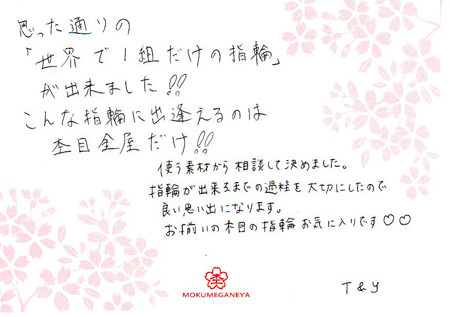 思った通りの
「世界で1組だけの指輪」
が出来ました!!
こんな指輪に出逢えるのは
杢目金屋だけ!!
使う素材から相談して決めました。
指輪が出来るまでの過程を大切にしたので
良い思い出になります。
お揃いの木目の指輪お気に入りです♡♡
MOKUMEGANEYA
T&Y